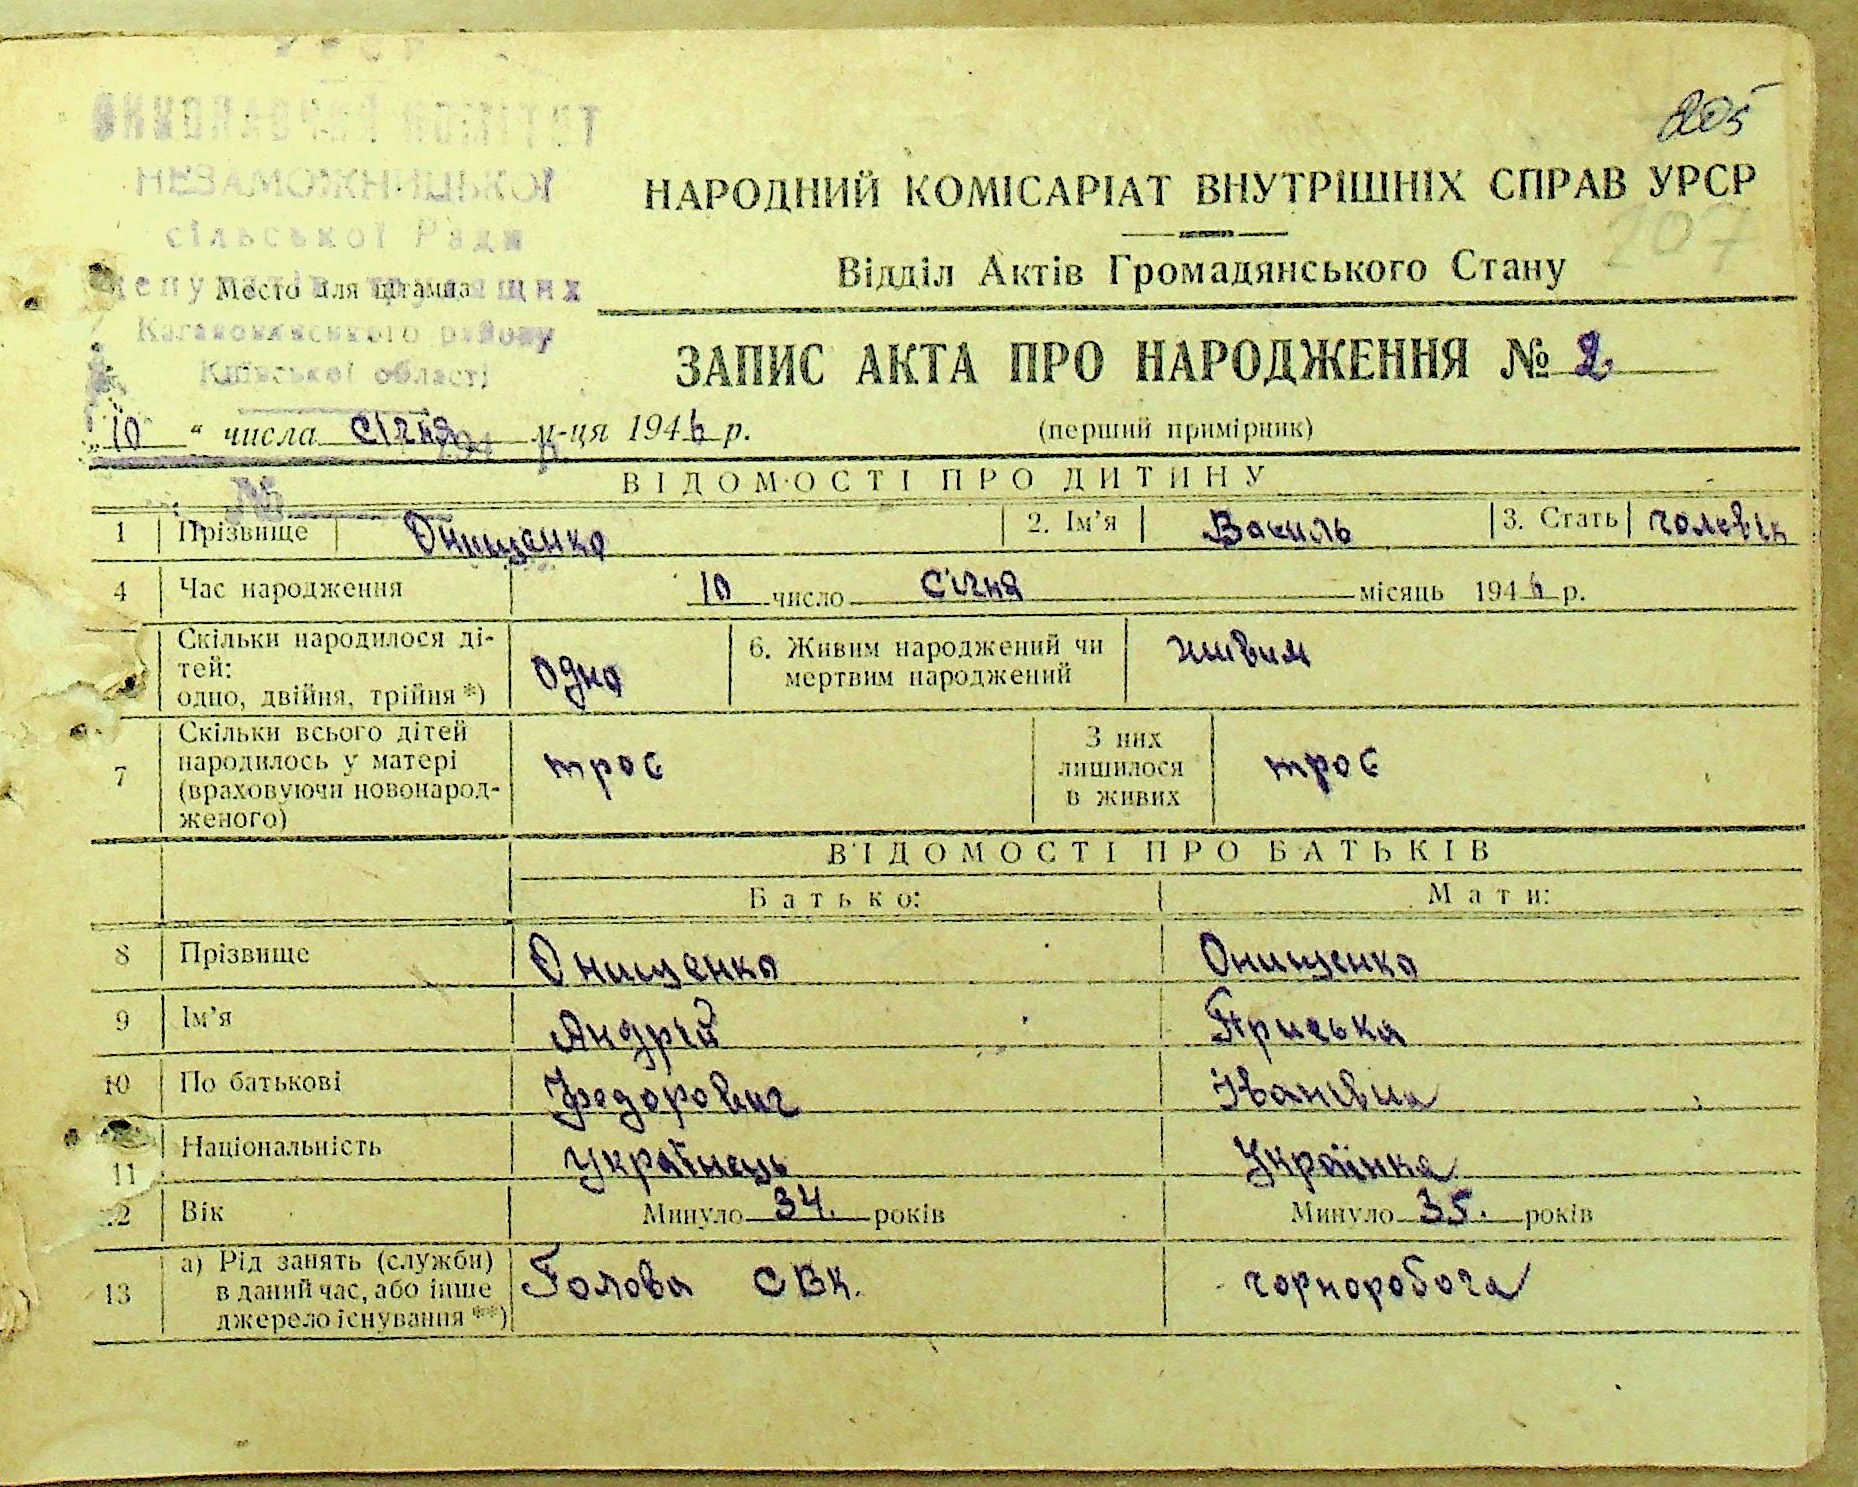 УРСР
205
НЕЗАМОЖНИЦЬКОЇ
НАРОДНИЙ КОМІСАРІАТ ВНУТРІШНІХ СПРАВ УРСР
207
сільської Ради
Відділ Актів Громадянського Стану
депутатів трудящих
Место для штампа
Кагановичського району
Київської області
ЗАПИС АКТА ПРО НАРОДЖЕННЯ № 2
„10“ числа січня м-ця 1946 р.
(перший примірник)
№
ВІДОМОСТІ ПРО ДИТИНУ
1 Прізвище Онищенко 2. Ім’я Василь 3. Стать чоловік
4 Час народження 10 число Січня місяць 1946 р.
Скільки народилося ді-
тей:
одно, двійня, трійня *) одно 6. Живим народжений чи
мертвим народжений живим
7 Скільки всього дітей
народилось у матері
(враховуючи новонарод-
женого) троє З них
лишилося
в живих троє
ВІДОМОСТІ ПРО БАТЬКІВ
Батько: Мати:
8 Прізвище Онищенко Онищенко
9 Ім’я Андрій Приська
10 По батькові Федорович Іванівна
11 Національність Українець Українка
12 Вік Минуло 34. років Минуло 35. років
13 а) Рід занять (служби)
в даний час, або інше
джерело існування **) Голова СВК. чорноробоча